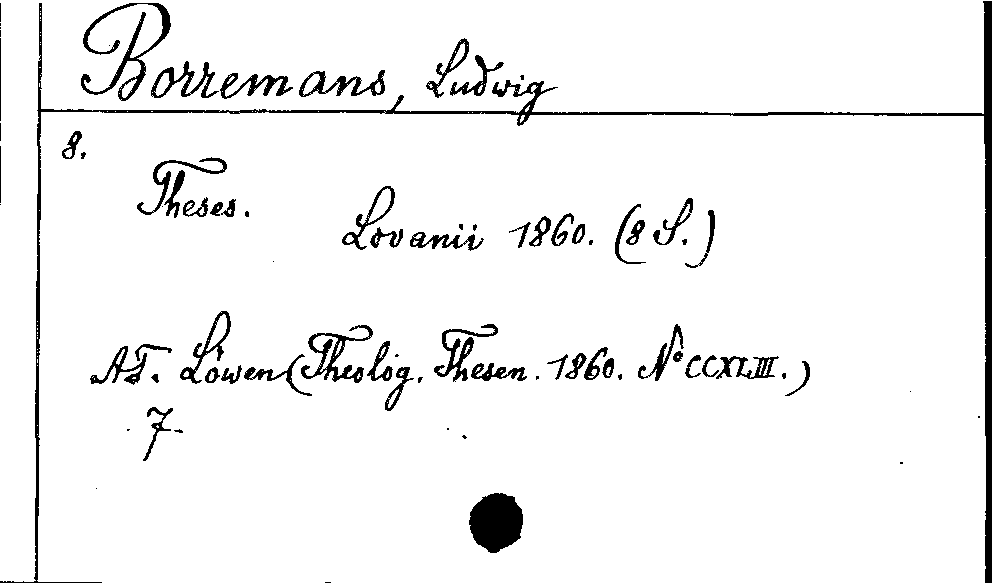 Borremans, Ludwig
8.
Theses.
Lovanii 1860. (8 S.)
AT. Löwen (Theolog. Thesen. 1860. No CCXLIII.)
7